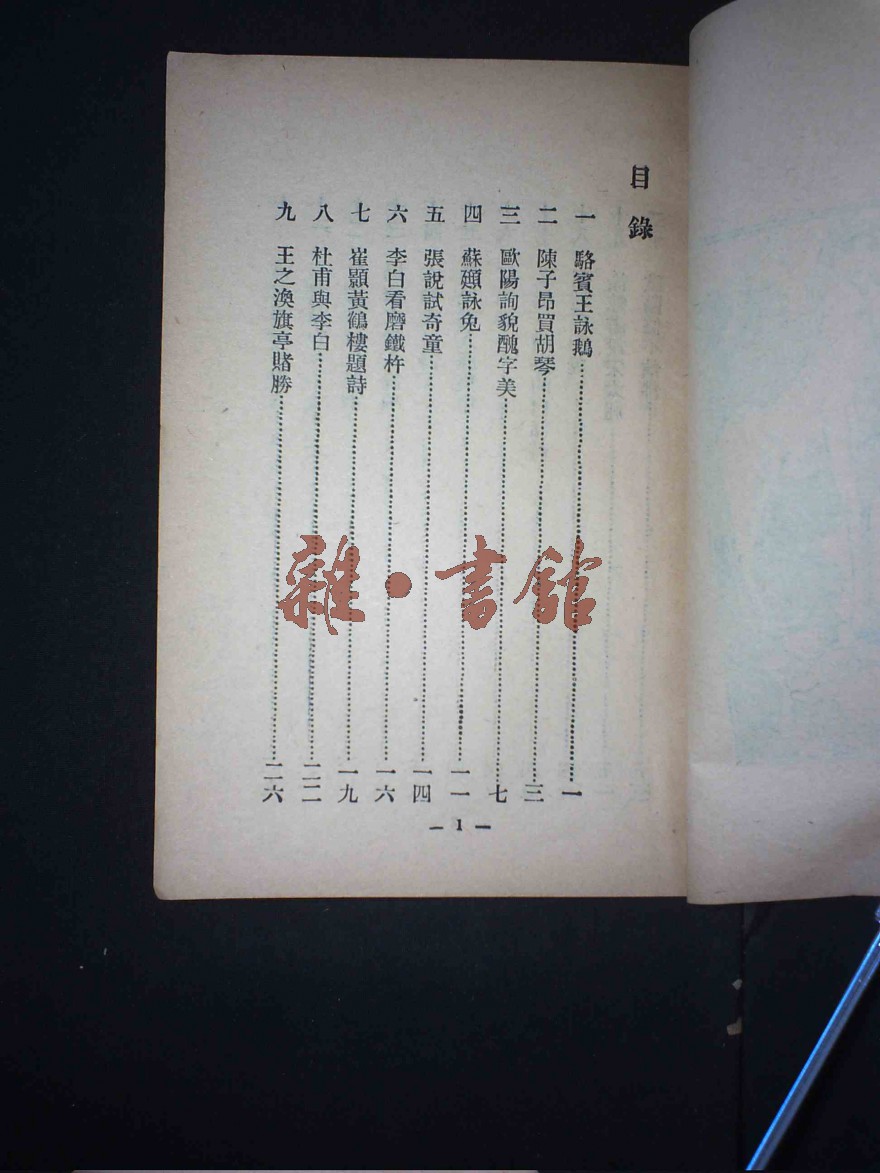 目錄
一 駱賓王詠鵝……一
二 陳子昂買胡琴……三
三 歐陽詢貌醜字美……七
四 蘇頲詠兔……一一
五 張說試奇童……一四
六 李白看磨鐵杵……一六
七 崔顥黃鶴樓題詩……一九
八 杜甫與李白……二二
九 王之渙旗亭賭勝……二六
— 1 —
雜·書館